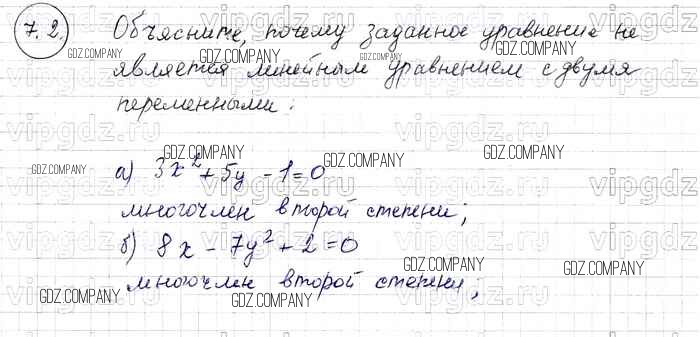 7.2. Объясните, почему заданное уравнение не
является линейным уравнением с двумя
переменными:
а) 3x² + 5y - 1 = 0
многочлен второй степени;
б) 8x - 7y² + 2 = 0
многочлен второй степени;
GDZ.COMPANY
vipgdz.ru